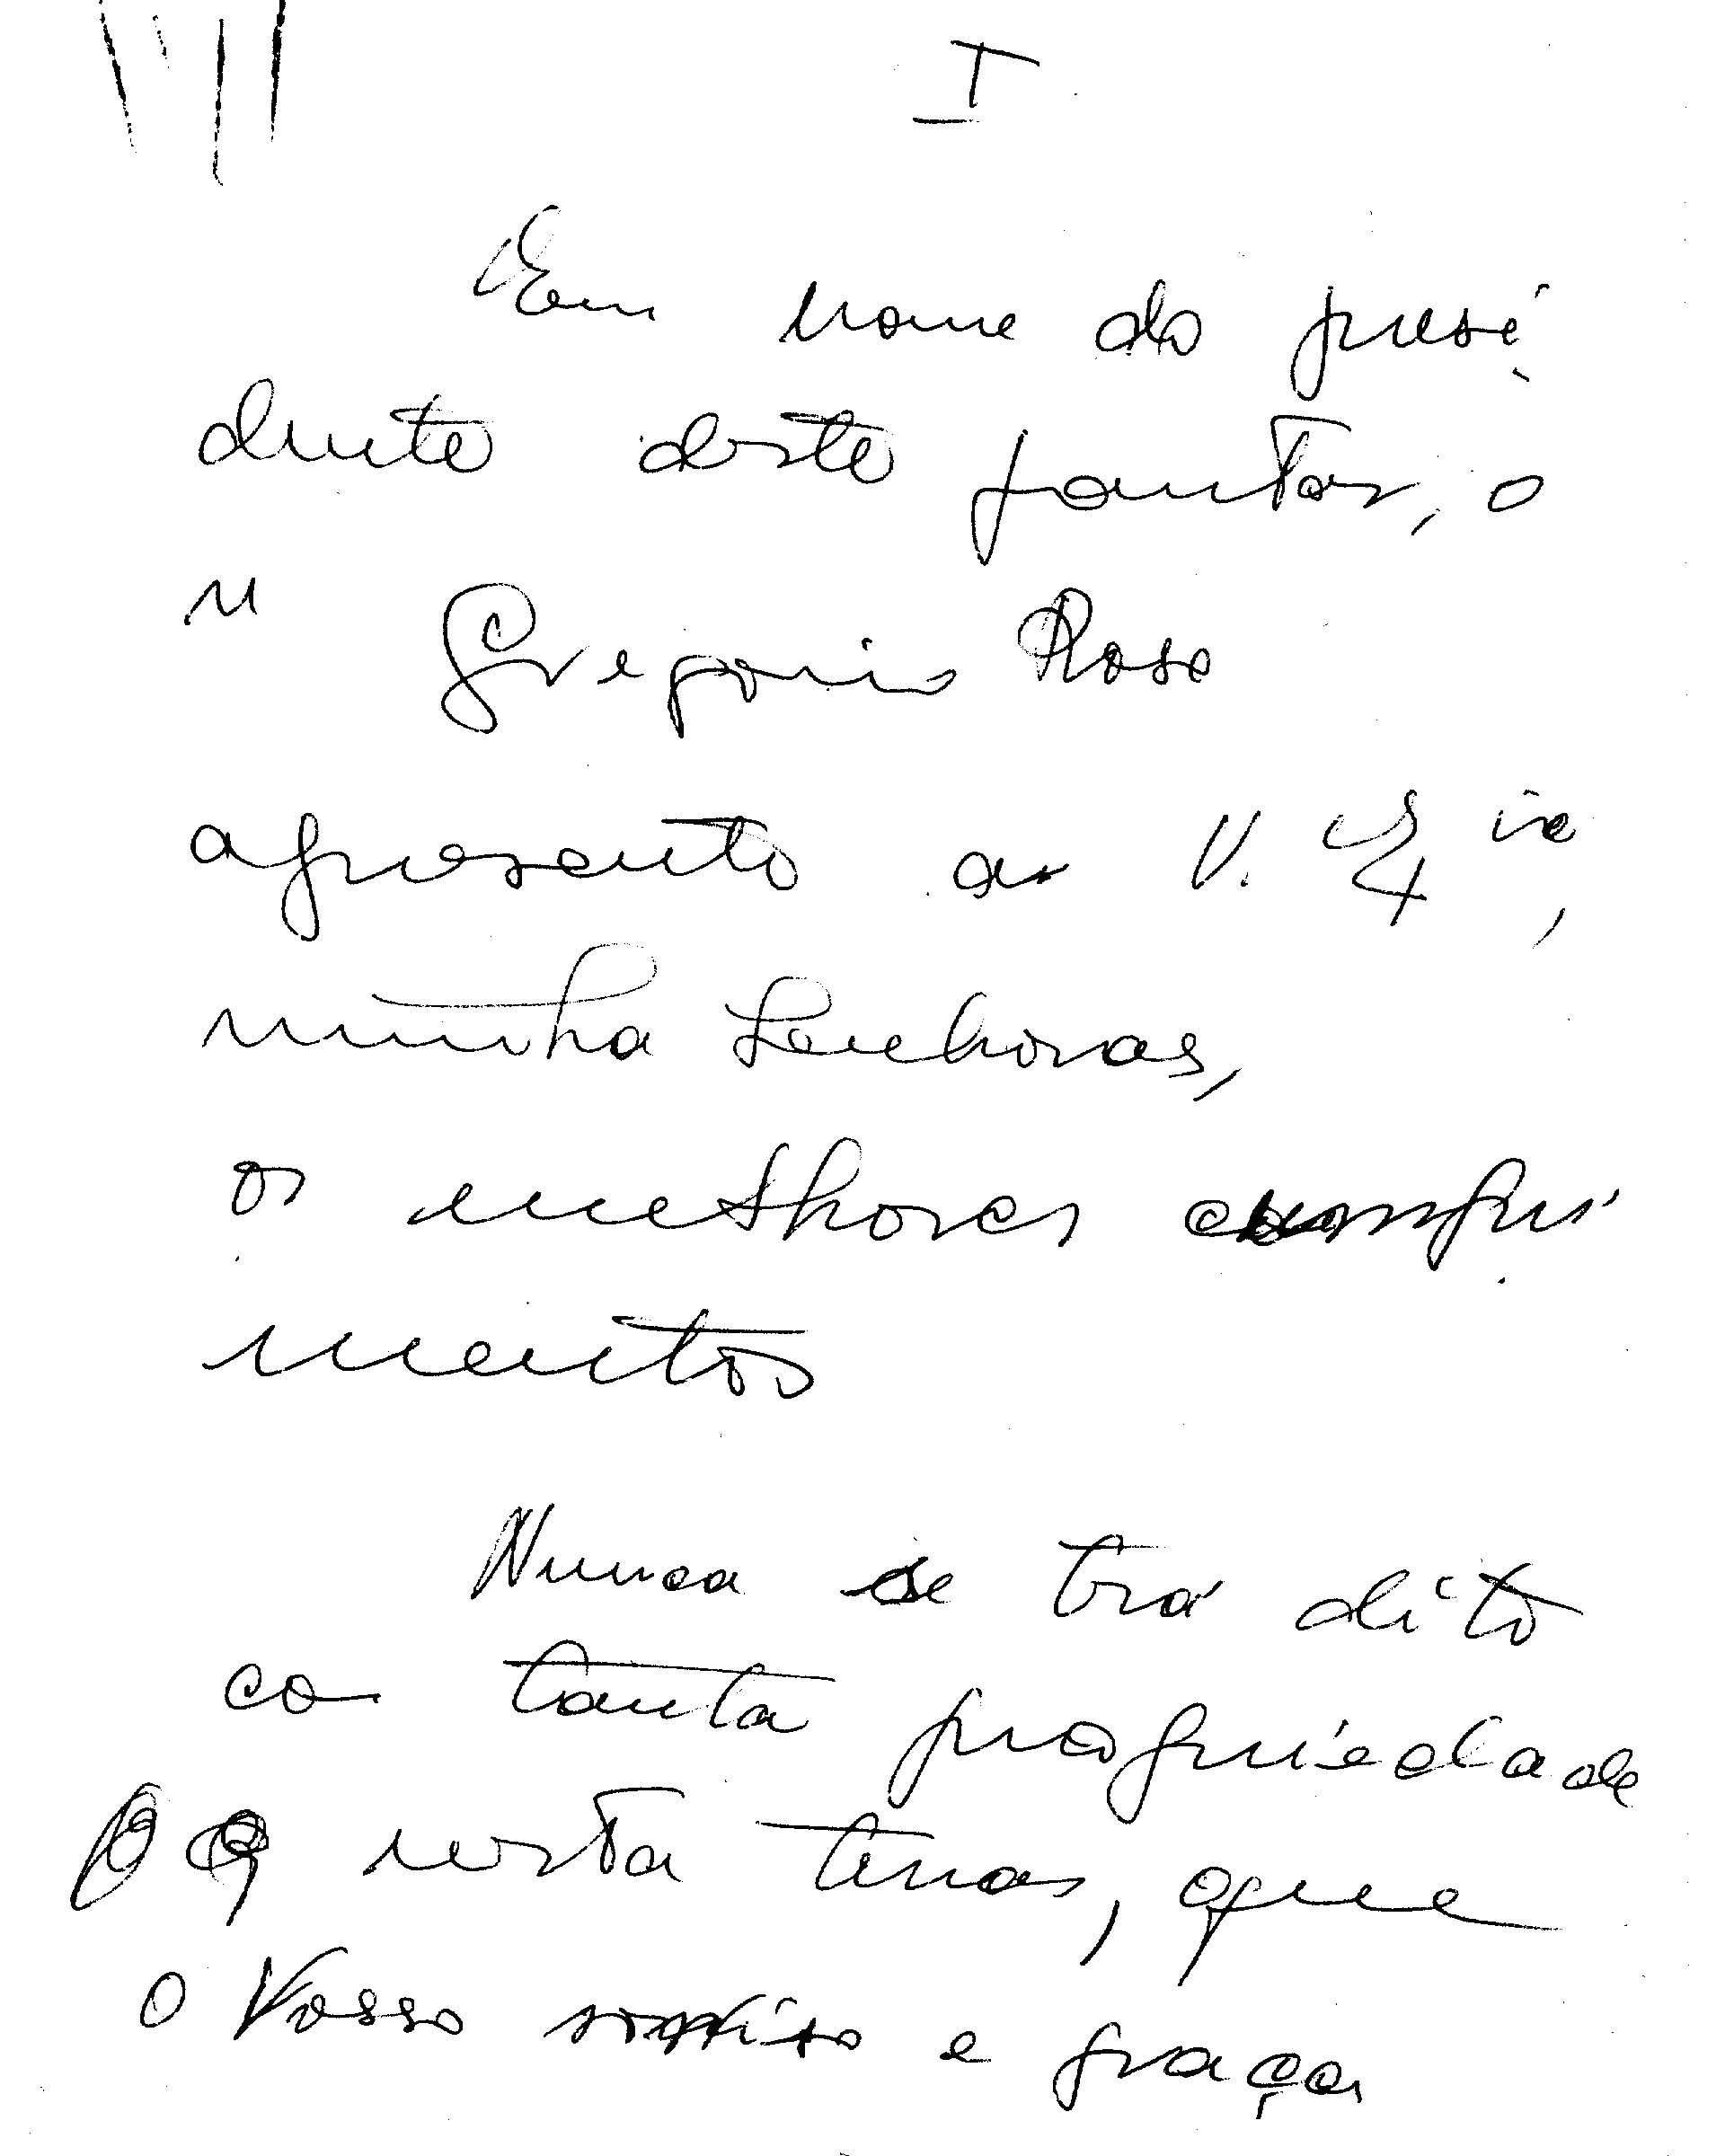 I
Em nome do presi
dente deste jantar, o
sr Gregorio Rosa
apresento as V. Ex cia,
minha Senhoras,
os melhores cumpri
mentos
Nunca se terá dito
com tanta propriedade
nesta terras, que
o Vosso sorriso e graça